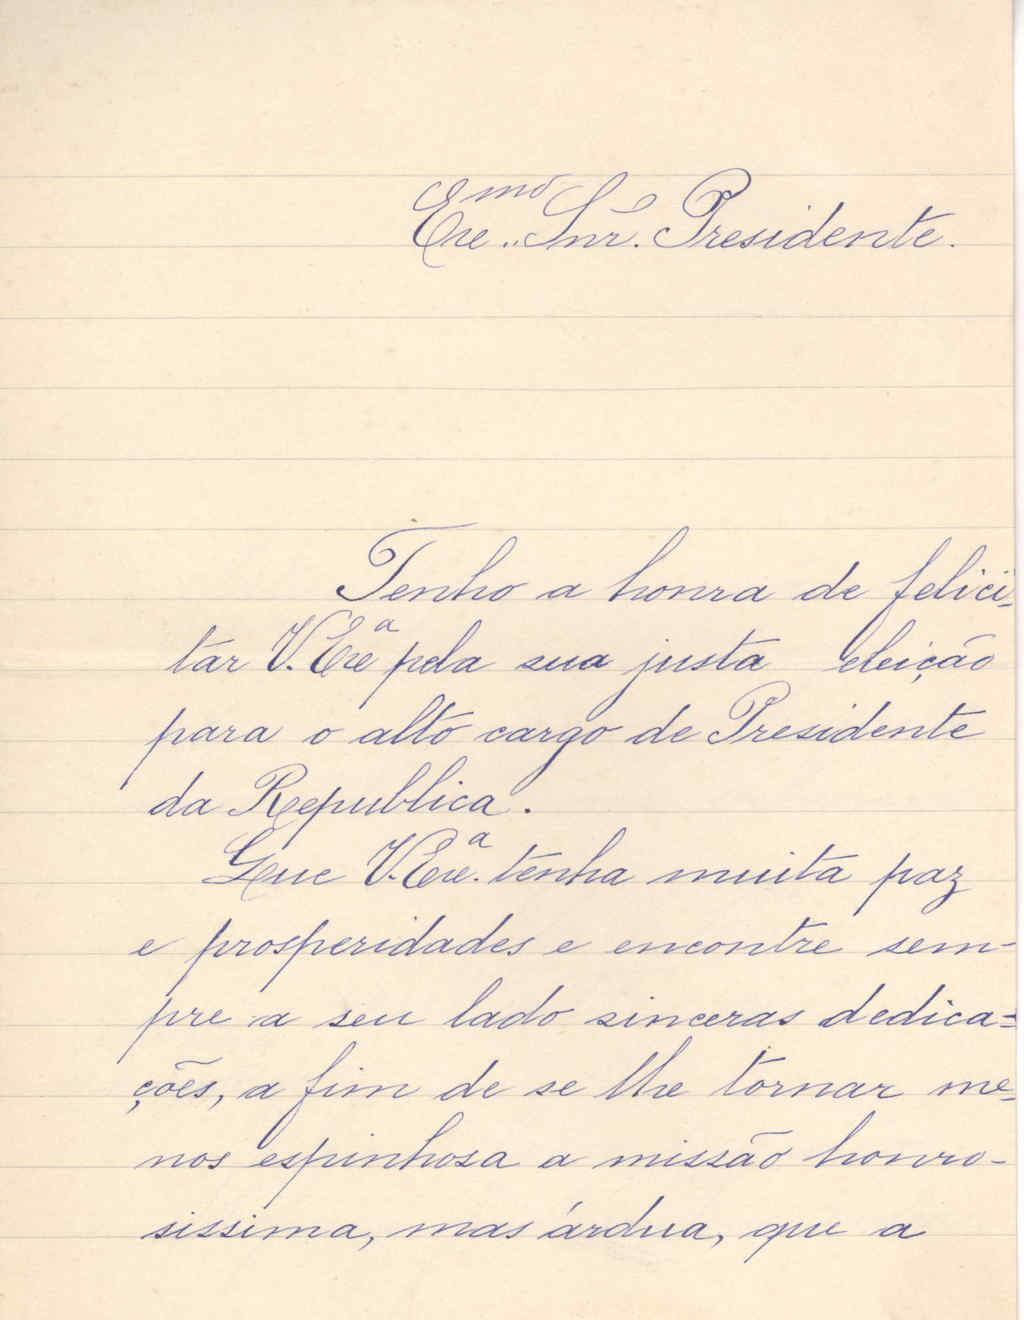 Exe.mo Snr. Presidente.
Tenho a honra de felici-
tar V. Exeª pela sua justa eleição
para o alto cargo de Presidente
da Republica.
Que V. Exe.ª tenha muita paz
e prosperidades e encontre sem-
pre a seu lado sinceras dedica=
ções, a fim de se lhe tornar me-
nos espinhosa a missão honro-
sissima, mas árdua, que a